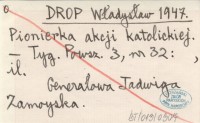 DROP Władysław 1947.
Pionierka akcji katolickiej.
— Tyg. Powsz. 3, nr 32:    ,
il.
Generałowa Jadwiga
Zamoyska.